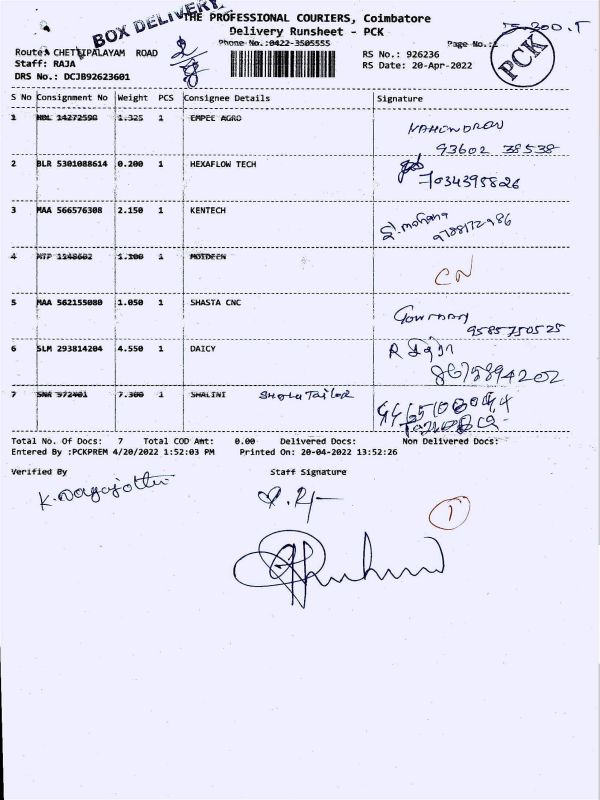 BOX DELIVERY
THE PROFESSIONAL COURIERS, Coimbatore
Delivery Runsheet - PCK
Phone No.:0422-3505555
Page No.:1
PCK
Route: CHETTIPALAYAM ROAD
RS No.: 926236
Staff: RAJA
RS Date: 20-Apr-2022
DRS No.: DCJB92623601
S No Consignment No Weight PCS Consignee Details Signature
1 HBL 14272590 1.325 1 EMPEE AGRO
93602 38538
2 BLR 5301088614 0.200 1 HEXAFLOW TECH
7034395826
3 MAA 566576308 2.150 1 KENTECH
4 MTP 1148602 1.100 1 MOIDEEN
CN
5 MAA 562155080 1.050 1 SHASTA CNC
9585750525
6 SLM 293814204 4.550 1 DAICY
8675894202
7 SNR 572401 7.300 1 SHALINI
Total No. Of Docs: 7 Total COD Amt: 0.00 Delivered Docs: Non Delivered Docs:
Entered By :PCKPREM 4/20/2022 1:52:03 PM Printed On: 20-04-2022 13:52:26
Verified By Staff Signature
1